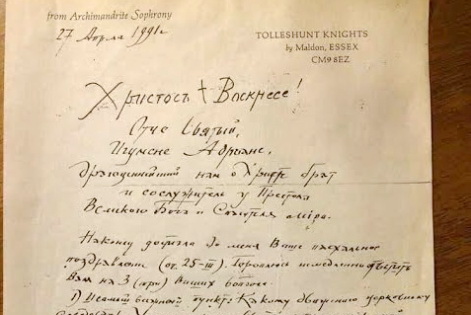 from Archimandrite Sophrony
27 Апреля 1991 г.
TOLLESHUNT KNIGHTS
by Maldon, ESSEX
CM9 8EZ
Христосъ † Воскресе!
Отче Святый,
Игумене Адрiане,
Драгоценнейший нам о Христе брат
и сослужитель у Престола
Великого Бога и Спасителя мiра.
Наконец до меня Ваше пасхальное
поздравление (от 25-III). немедленно ответить
Вам на 3 (три) Ваших вопроса.
1) пункт: Какому церковному